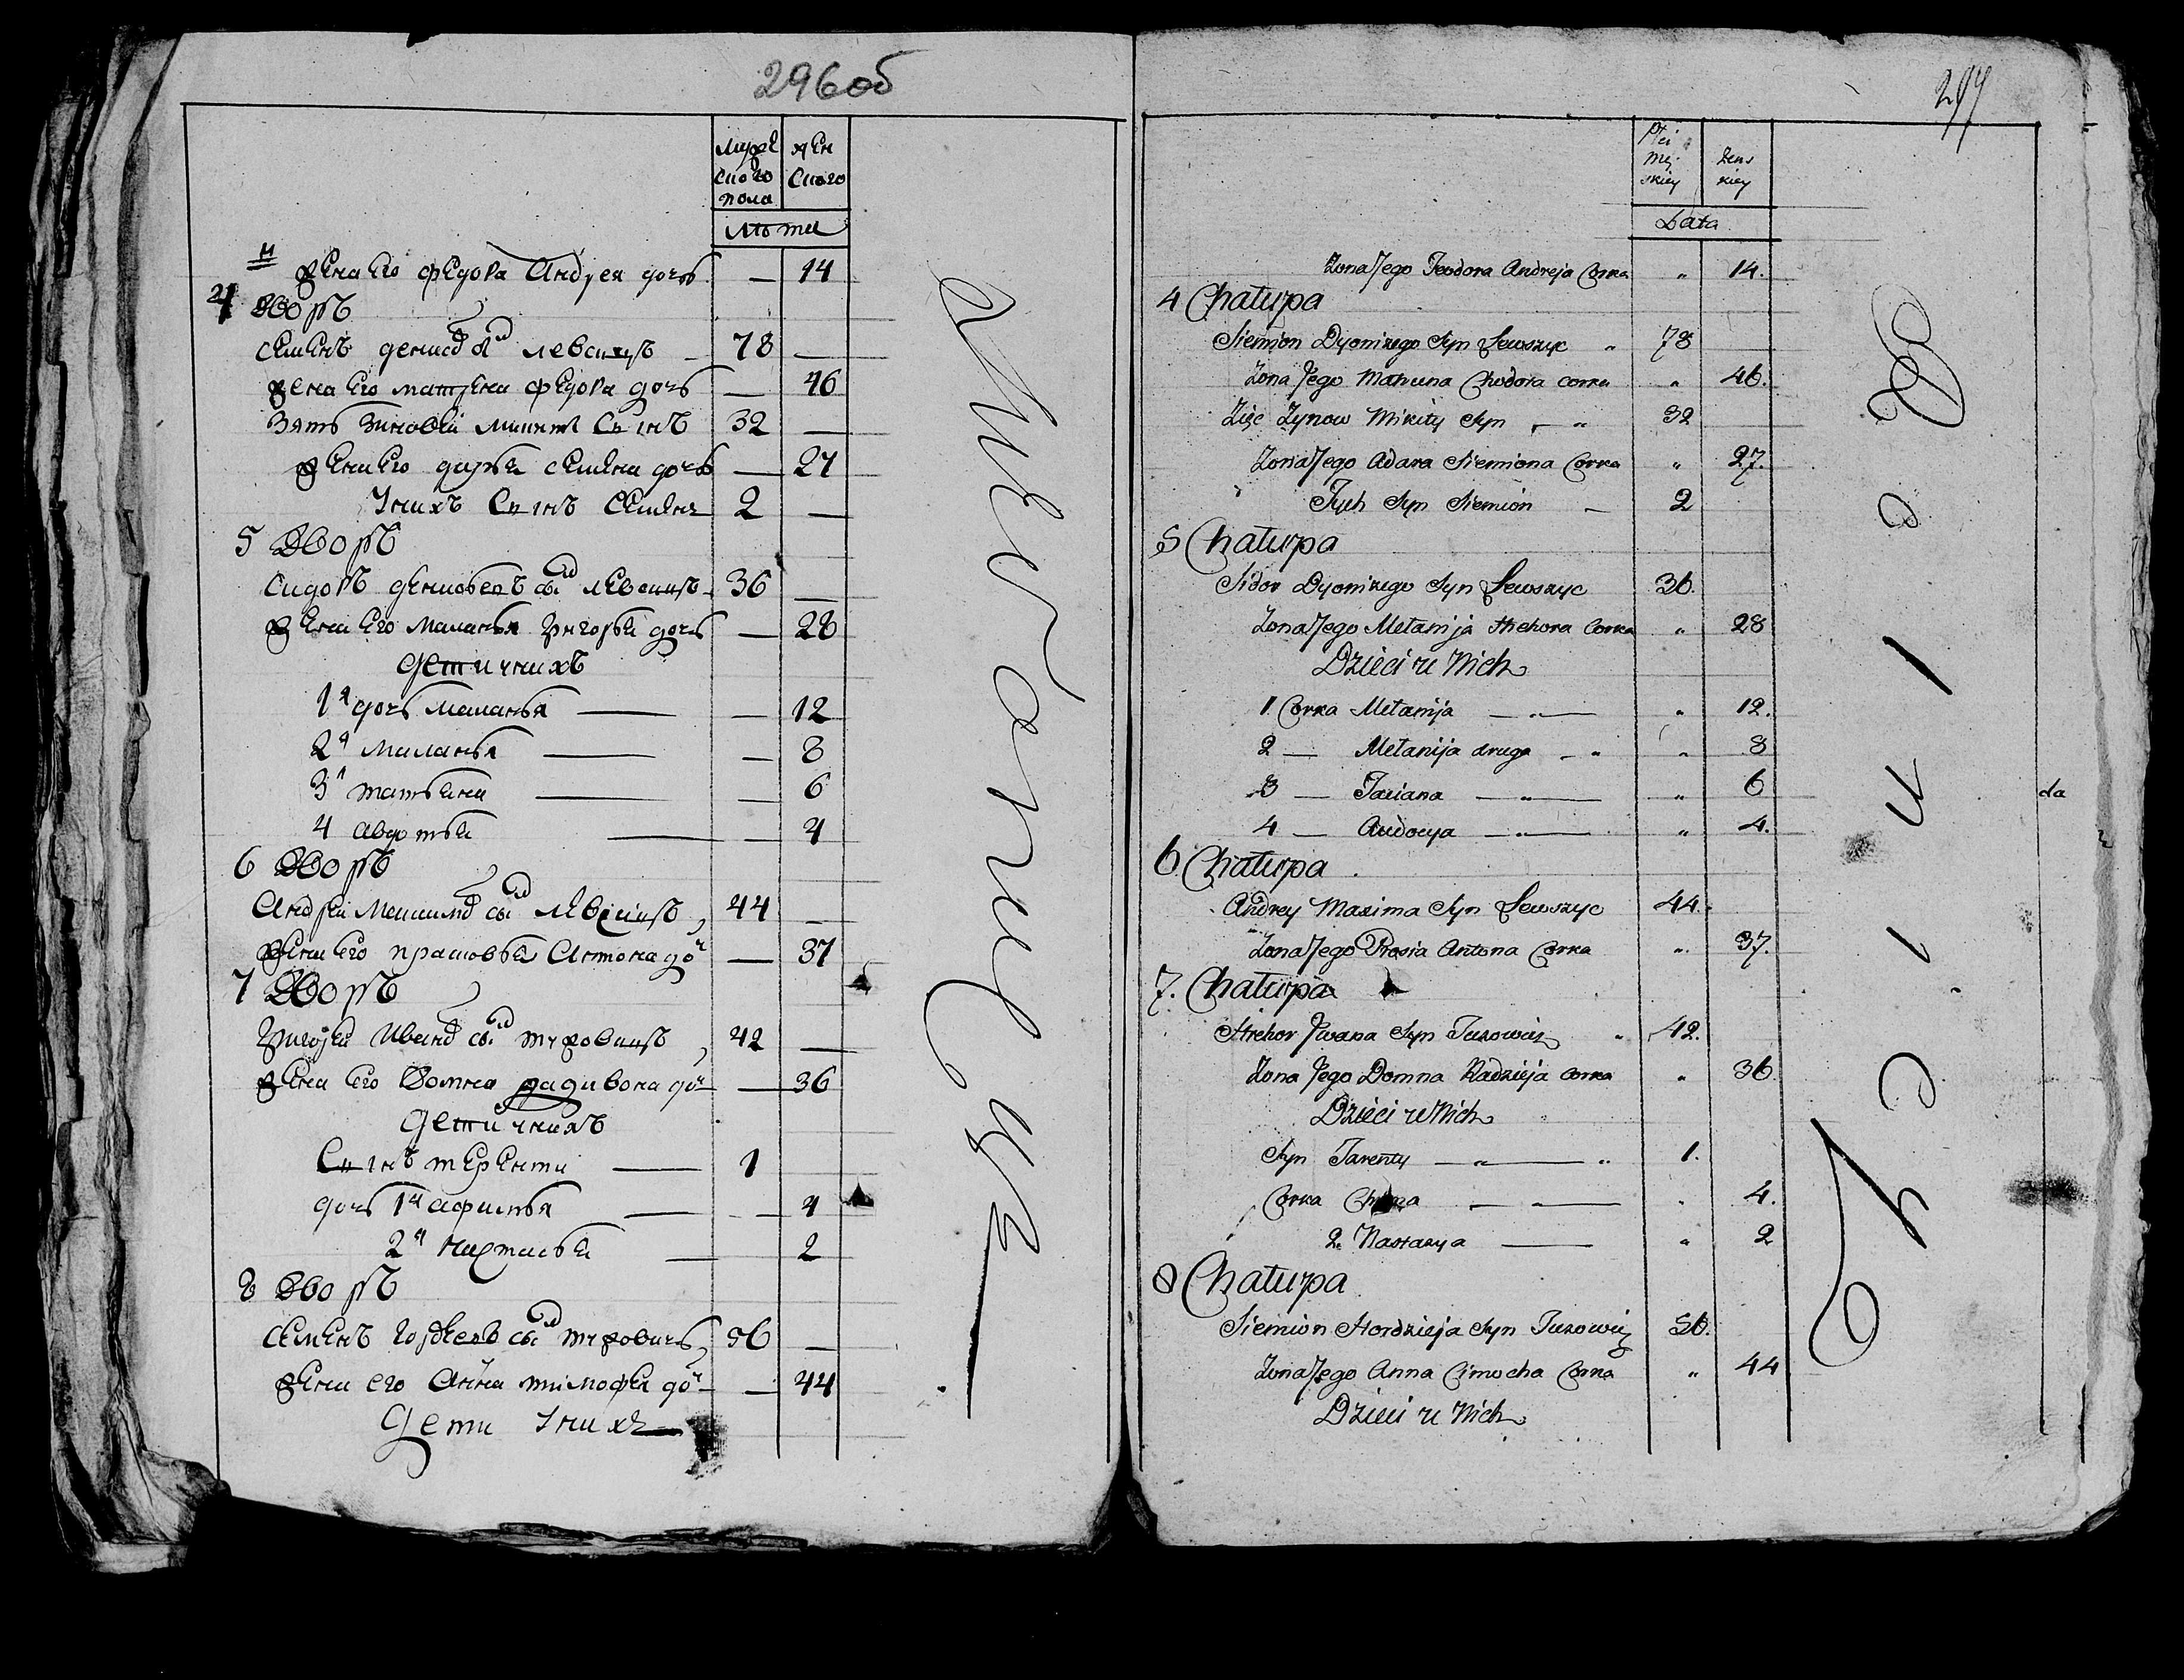 296об
Мужескаго пола
женскаго
лѣты
жена его федора Андрея дочь — 14
4 Дворъ
Семенъ денисовъ сынъ левсицъ — 78 —
жена его матруна федора дочь — 46
Зять Зиновей Микиты Сынъ 32 —
жена его дарья семена дочь — 27
У нихъ Сынъ Семенъ 2 —
5 Дворъ
Сидоръ денисовъ сынъ левсицъ 36 —
жена его маланья григорья дочь — 28
дети у нихъ
1я дочь маланья — — 12
2я маланья — — 8
3я татьяна — — 6
4 авдотья — — 4
6 Дворъ
Андрей Максимовъ сынъ левсицъ, 44 —
жена его прасковья Антона до — 37
7 Дворъ
григорей Ивановъ сынъ туровицъ, 42 —
жена его Домна радивона до — 36
дети у нихъ
Сынъ терентий — 1
дочь 1я афимья — — 4
2я настасья — 2
8 Дворъ
Семенъ гордеевъ сынъ туровичъ, 56 —
жена его Анна тимофея до — — 44
дети у нихъ
297
Płci Męskiey
Żenskiey
Lata
Żona Jego Teodora Andreja Corka " 14.
4 Chałupa
Siemion Dyonizego Syn Lewszyc " 78
Żona Jego Matruna Chodora corka " 46.
Zięć Zynow Mikity Syn — " 32
Żona Jego Adara Siemiona Corka " 27.
Jych Syn Siemion — 2
5 Chałupa
Sidor Dyonizego Syn Lewszyc 36.
Żona Jego Mełanija Hrehora Corka " 28
Dzieci u Nich
1 Corka Mełanija — " — " 12.
2 — Mełanija druga — " " 8
3 — Taciana — " — " 6
4 — Audocya — " — " 4.
da
6 Chałupa
Andrey Maxima Syn Lewszyc 44.
Żona Jego Prosia Antona Corka " 37.
7. Chałupa
Hrehor Jwana Syn Turowicz " 42.
Żona Jego Domna Radzieja corka " 36
Dzieci u Nich
Syn Tarenty — " — " 1.
Corka — " — " 4.
2. Nastazya — " 2
8 Chałupa
Siemion Hordzieja Syn Turowicz 56.
Żona Jego Anna Cimocha Corka " 44
Dzieci u Nich